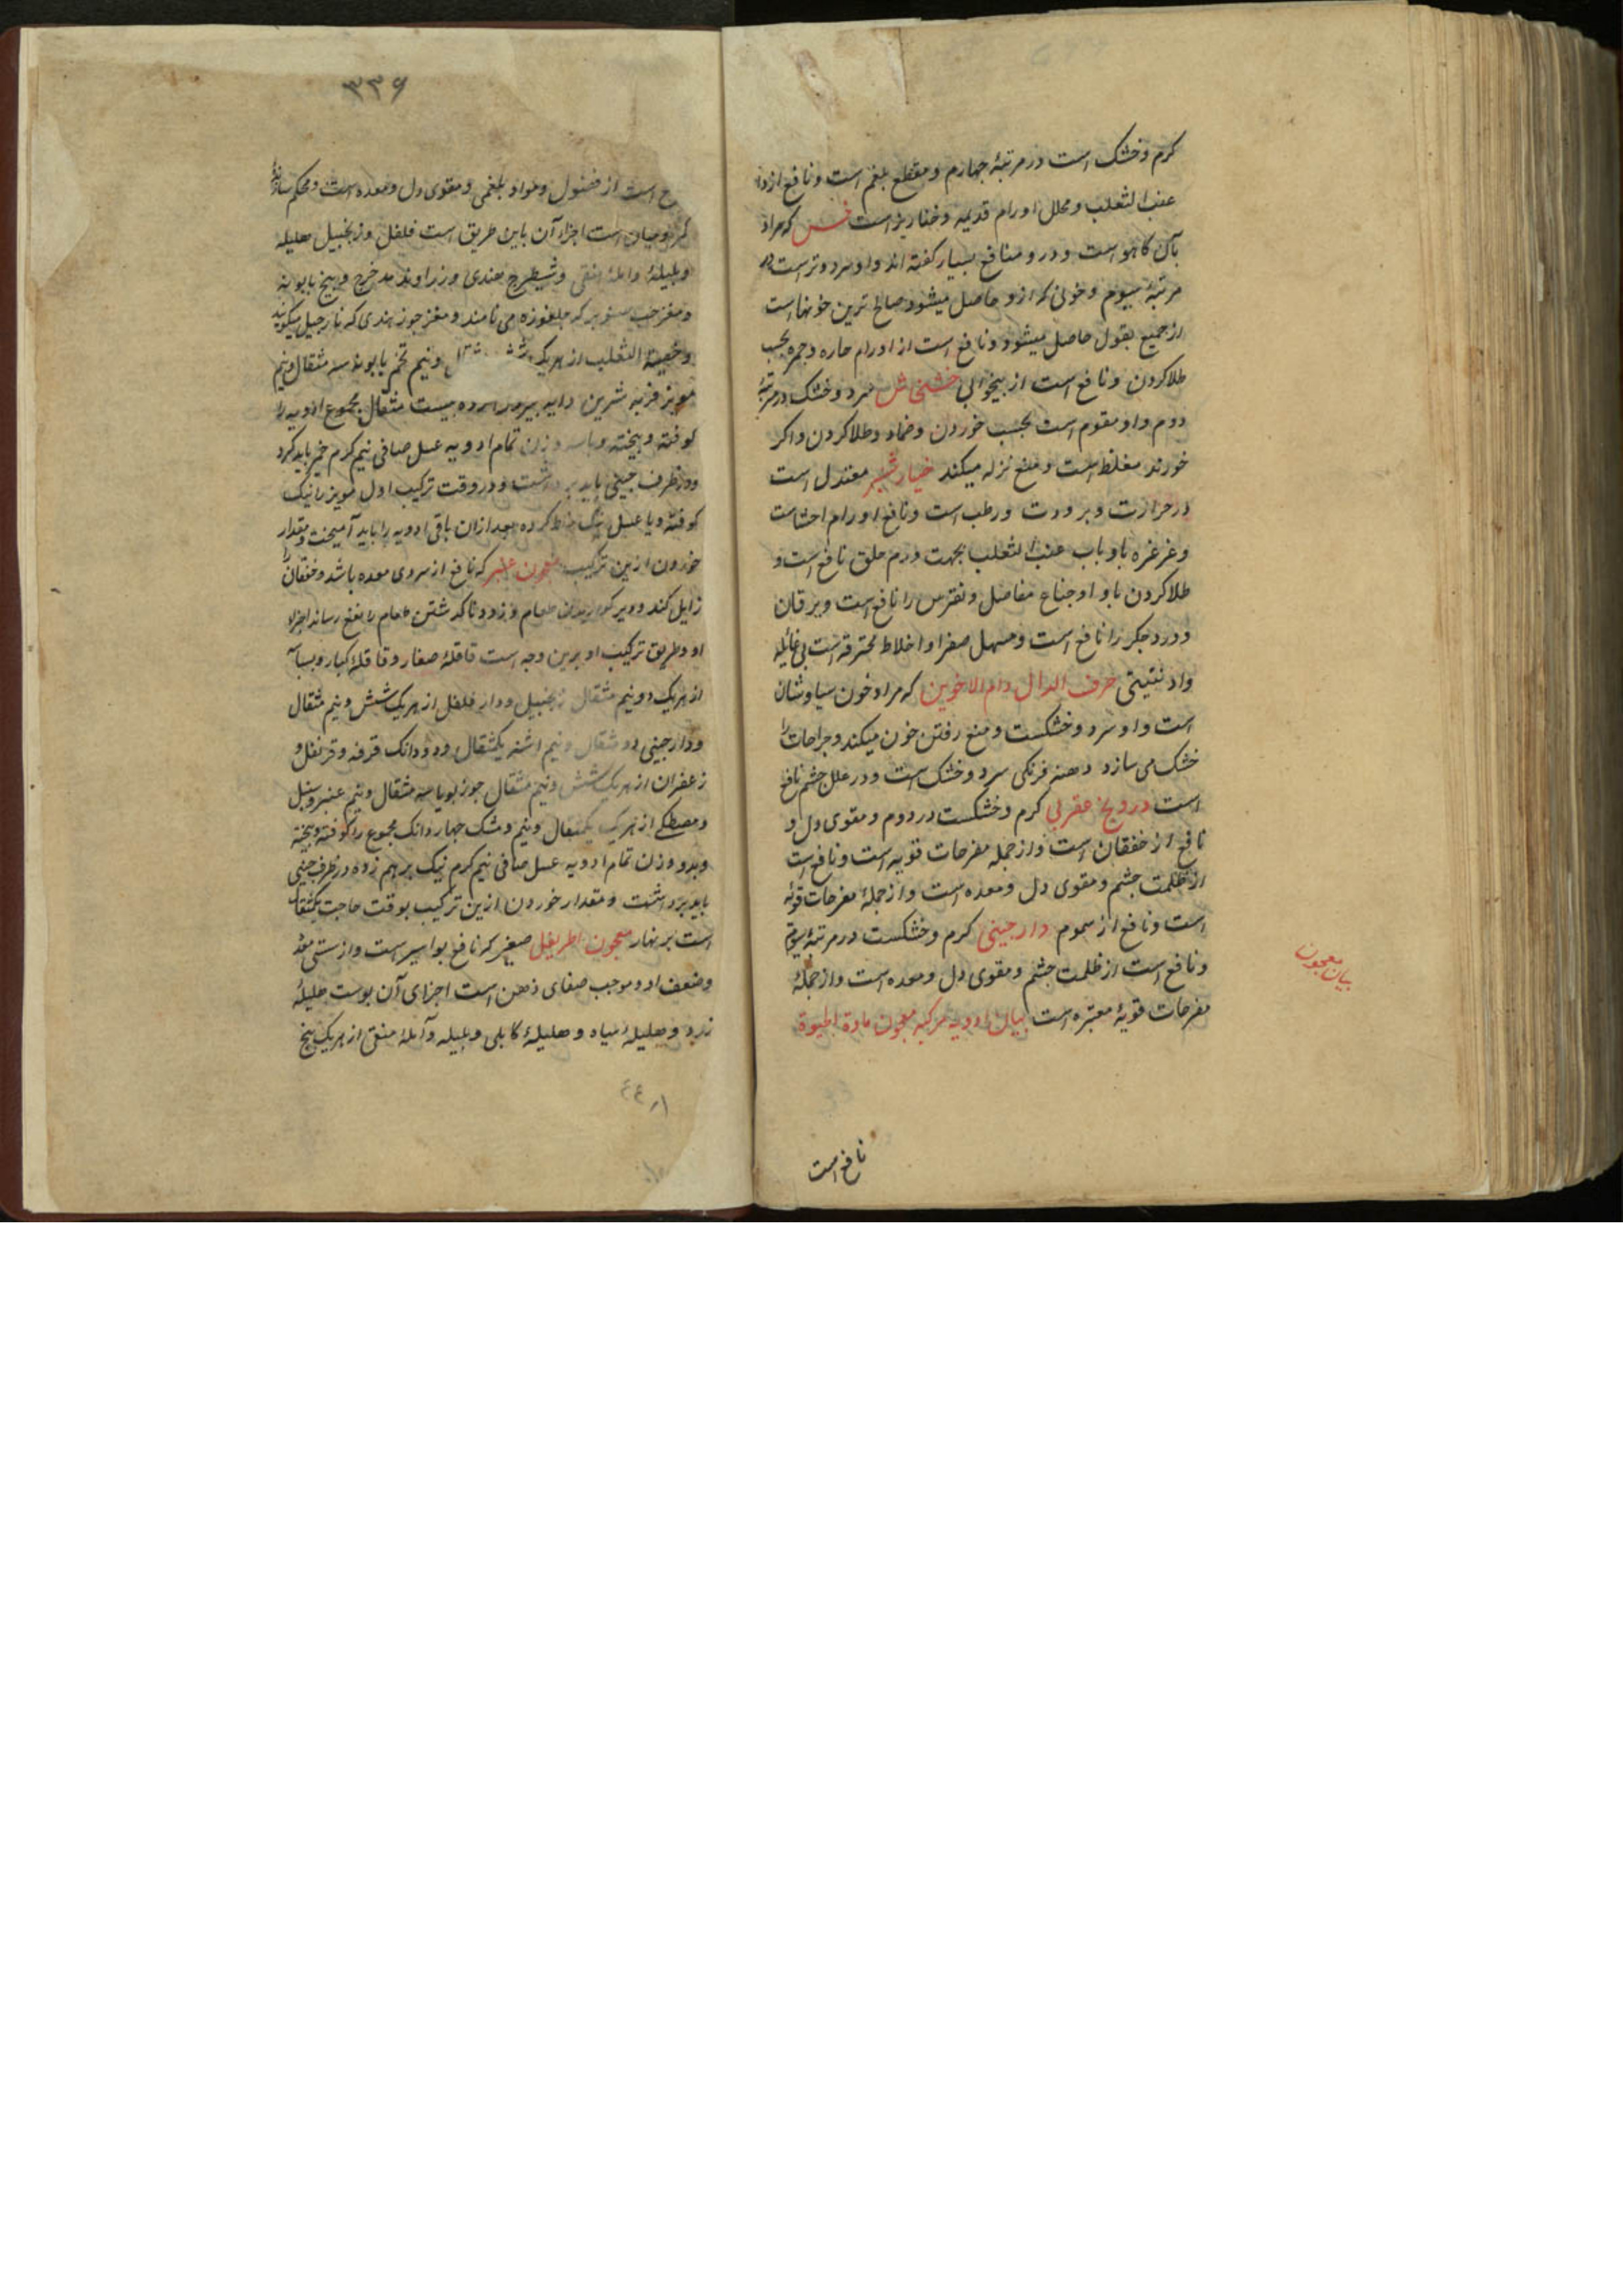 کرم و خشک است در مرتبهٔ چهارم و مقطع بلغم است و نافع از داء
عنب الثعلب و محلل اورام قدیمه و خنازیر است خس که مراد
بآن کاهو است و درو منافع بسیار کفته اند و او سرد و تر است در
مرتبهٔ سیوم و خونی که ازو حاصل میشود صالح ترین خونهاست
از جمیع بقول حاصل میشود و نافع است از اورام حاره و جمره بحسب
طلا کردن و نافع است از بیخوابی خشخاش سرد و خشک در مرتبهٔ
دوم و او مقوم است بحسب خوردن و ضماد و طلا کردن و اکر
خورند مغلظ است و منع نزله میکند خیار شنبر معتدل است
در حرارت و برودت و رطب است و نافع اورام احشاست
و غرغره باو باب عنب الثعلب بجهت ورم حلق نافع است و
طلا کردن باو اوجاع مفاصل و نقرس را نافع است و یرقان
و درد جکر را نافع است و مسهل صفرا و اخلاط محترقه است بی غائله
و اذیتی حرف الدال دام الاخوین که مراد خون سیاوشان
است و او سرد و خشکست و منع رفتن خون میکند و جراحات را
خشک می سازد دهنه فرنکی سرد و خشک است و در علل چشم نافع
است درونج عقربی کرم و خشکست در دوم و مقوی دل و
نافع از خفقان است و از جمله مفرحات قویه است و نافع است
از ظلمت چشم و مقوی دل و معده است و از جملهٔ مفرحات قویه
است و نافع از سموم دارچینی کرم و خشکست در مرتبهٔ سیوم
و نافع است از ظلمت چشم و مقوی دل و معده است و از جملهٔ
مفرحات قویهٔ معتبره است بیان ادویه مرکبه معجون مادة الحیوة
بیان معجون
نافع است
۳۳۶
است از فضول و مواد بلغمی و مقوی دل و معده است و محکم سازنده
کمر و میان است اجزاء آن باین طریق است فلفل و زنجبیل هلیله
و بلیلهٔ و املهٔ منقی و شیطرج هندی و زراوند مدحرج و بیخ بابونه
و مغز حب صنوبر که جلغوزه می نامند و مغز جوز هندی که نارجیل میکویند
و خصیة الثعلب از هریک و نیم تخم بابونه سه مثقال و نیم
مویز فربه شرین دانه بیرون کرده بیست مثقال مجموع ادویه را
کوفته و بیخته و با سه وزن تمام ادویه عسل صافی نیم کرم خمیر باید کرد
و در ظرف چینی باید برداشت و در وقت ترکیب اول مویز را نیک
کوفته و با عسل نیک خلط کرده بعد ازان باقی ادویه را باید آمیخت و مقدار
خوردن ازین ترکیب معجون عنبر که نافع از سردی معده باشد و خفقان را
زایل کند و دیر کواریدن طعام و زود ناکذشتن طعام را نفع رساند اجزاء
او و طریق ترکیب او برین وجه است قاقلهٔ صغار و قاقلهٔ کبار و بسباسه
از هریک دو نیم مثقال زنجبیل و دار فلفل از هریک شش و نیم مثقال
و دارچینی دو مثقال و نیم اشنه یکمثقال و دو دانک قرفه و قرنفل و
زعفران از هریک شش و نیم مثقال جوز بویا سه مثقال و نیم عنبر و سنبل
و مصطکی از هریک یکمثقال و نیم و مشک چهار دانک مجموع را کوفته و بیخته
و بدو وزن تمام ادویه عسل صافی نیم کرم نیک برهم زده در ظرف چینی
باید برداشت و مقدار خوردن ازین ترکیب بوقت حاجت یکمثقال
است بر نهار معجون اطریفل صغیر که نافع بواسیر است و از سستی معده
و ضعف او و موجب صفای ذهن است اجزای آن پوست هلیلهٔ
زرد و هلیلهٔ سیاه و هلیلهٔ کابلی و بلیله و آملهٔ منقی از هریک پنج